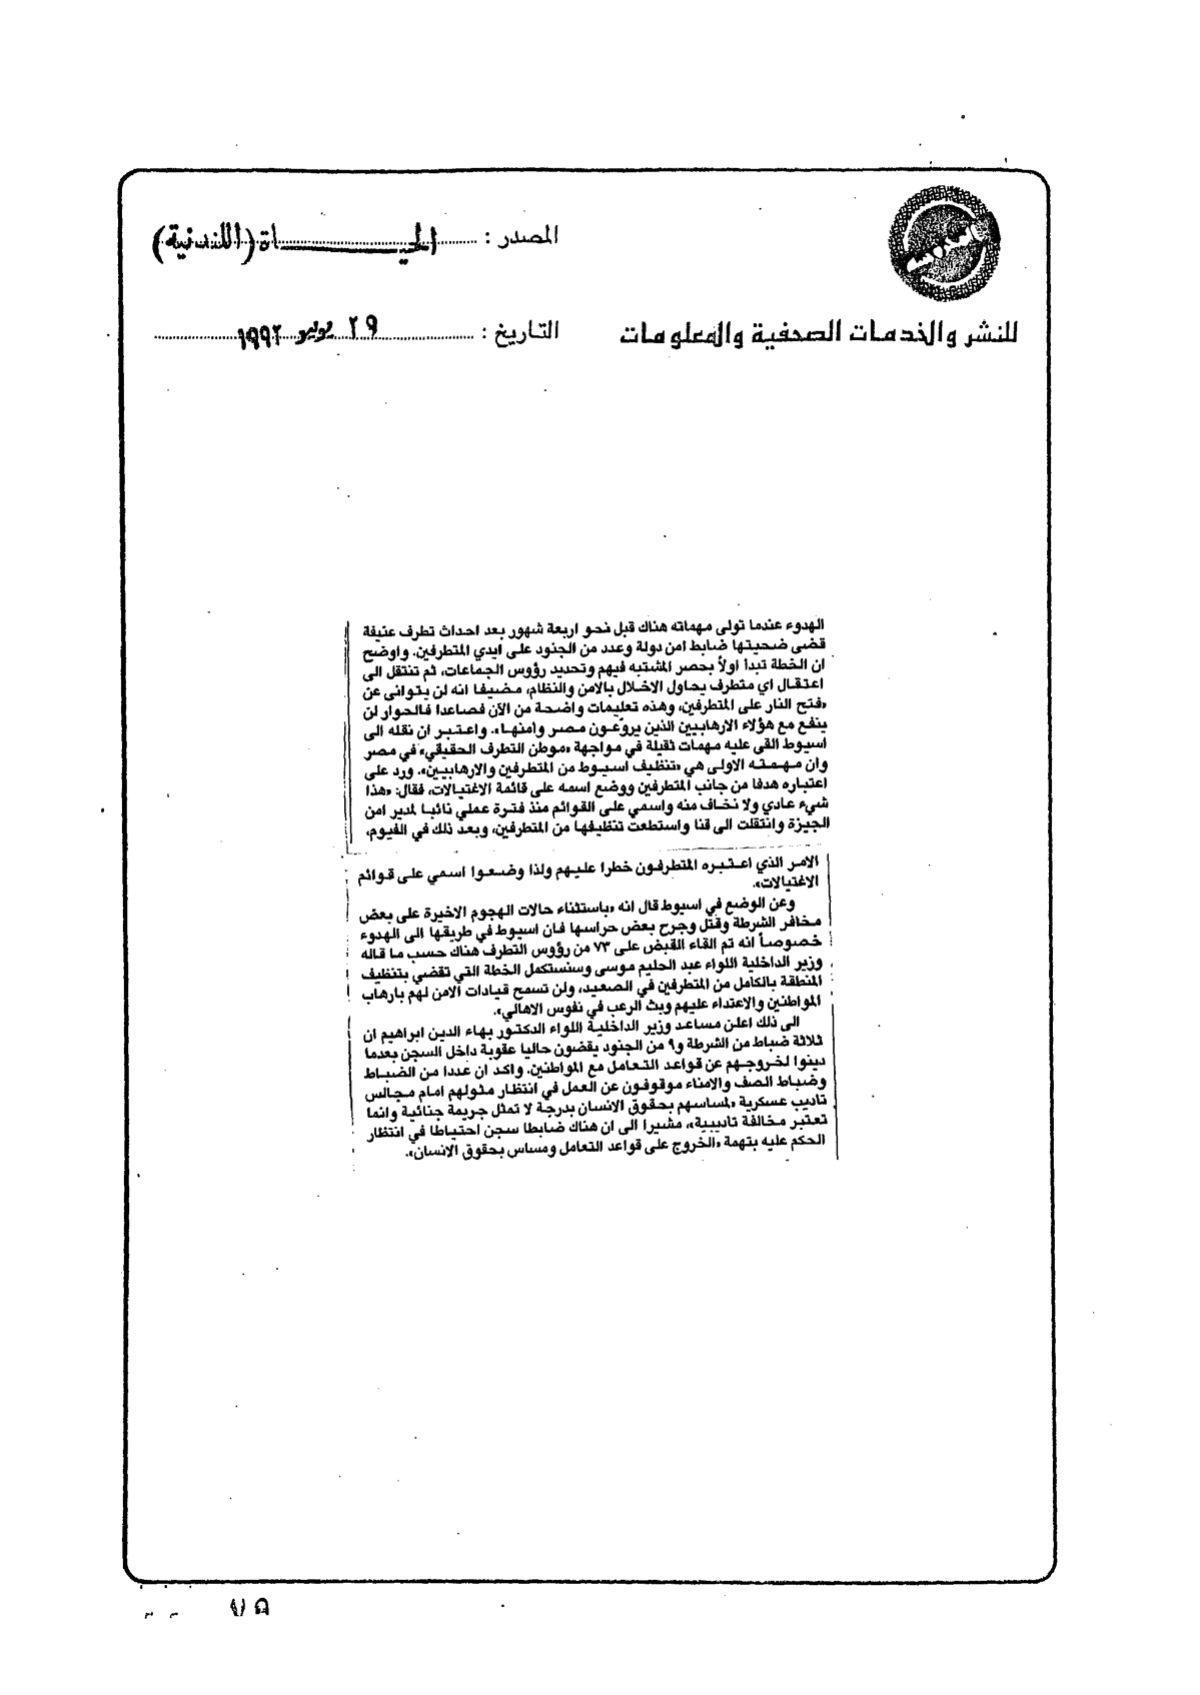 المصدر : الحياة (اللندنية)
للنشر والخدمات الصحفية والمعلومات
التاريخ : ٢٩ يوليو ١٩٩٢
الهدوء عندما تولى مهماته هناك قبل نحو اربعة شهور بعد احداث تطرف عنيفة
قضى ضحيتها ضابط امن دولة وعدد من الجنود على ايدي المتطرفين. واوضح
ان الخطة تبدا اولاً بحصر المشتبه فيهم وتحديد رؤوس الجماعات، ثم تنتقل الى
اعتقال اي متطرف يحاول الاخلال بالامن والنظام، مضيفا انه لن يتوانى عن
«فتح النار على المتطرفين، وهذه تعليمات واضحة من الآن فصاعدا فالحوار لن
ينفع مع هؤلاء الارهابيين الذين يروّعون مصر وامنها». واعتبر ان نقله الى
اسيوط القى عليه مهمات ثقيلة في مواجهة «موطن التطرف الحقيقي» في مصر
وان مهمته الاولى هي «تنظيف اسيوط من المتطرفين والارهابيين». ورد على
اعتباره هدفا من جانب المتطرفين ووضع اسمه على قائمة الاغتيالات، فقال: «هذا
شيء عادي ولا نخاف منه واسمي على القوائم منذ فترة عملي نائبا لمدير امن
الجيزة وانتقلت الى قنا واستطعت تنظيفها من المتطرفين، وبعد ذلك في الفيوم،
الامر الذي اعتبره المتطرفون خطرا عليهم ولذا وضعوا اسمي على قوائم
الاغتيالات».
وعن الوضع في اسيوط قال انه «باستثناء حالات الهجوم الاخيرة على بعض
مخافر الشرطة وقتل وجرح بعض حراسها فان اسيوط في طريقها الى الهدوء
خصوصاً انه تم القاء القبض على ٧٣ من رؤوس التطرف هناك حسب ما قاله
وزير الداخلية اللواء عبد الحليم موسى وسنستكمل الخطة التي تقضي بتنظيف
المنطقة بالكامل من المتطرفين في الصعيد، ولن تسمح قيادات الامن لهم بارهاب
المواطنين والاعتداء عليهم وبث الرعب في نفوس الاهالي».
الى ذلك اعلن مساعد وزير الداخلية اللواء الدكتور بهاء الدين ابراهيم ان
ثلاثة ضباط من الشرطة و٩ من الجنود يقضون حاليا عقوبة داخل السجن بعدما
دينوا لخروجهم عن قواعد التعامل مع المواطنين. واكد ان عددا من الضباط
وضباط الصف والامناء موقوفون عن العمل في انتظار مثولهم امام مجالس
تاديب عسكرية «لمساسهم بحقوق الانسان بدرجة لا تمثل جريمة جنائية وانما
تعتبر مخالفة تاديبية»، مشيرا الى ان هناك ضابطا سجن احتياطا في انتظار
الحكم عليه بتهمة «الخروج على قواعد التعامل ومساس بحقوق الانسان».